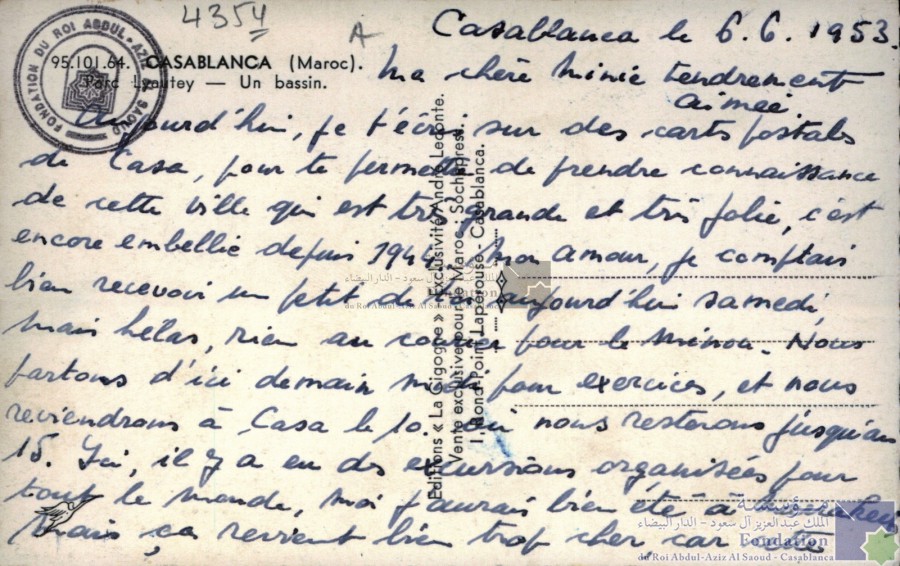 4354
A
FONDATION DU ROI ABDUL-AZIZ AL SAOUD
95.101.64. CASABLANCA (Maroc).
Parc Lyautey — Un bassin.
Casablanca le 6.6.1953.
Ma chère Minie tendrement
aimée
Aujourd'hui, je t'écris sur des carts postales
de Casa, pour te permettre de prendre connaissance
de cette ville qui est très grande et très jolie, c'est
encore embellie depuis 1944. Mon amour, je comptais
bien recevoir un petit de toi aujourd'hui samedi,
mais hélas, rien au courrier pour le Minou. Nous
partons d'ici demain pour exercices, et nous
reviendrons à Casa le 10. où nous resterons jusqu'au
15. Ici, il y a eu des excursions organisées pour
tout le monde, moi j'aurais bien été à
Mais ça revient bien trop cher car
Editions « La Cigogne » Exclusivité André Leconte.
Vente exclusive pour le Maroc : Sochepress.
1, Rond-Point Lapérouse - Casablanca.
مؤسسة
الملك عبد العزيز آل سعود - الدار البيضاء
Fondation
du Roi Abdul-Aziz Al Saoud - Casablanca